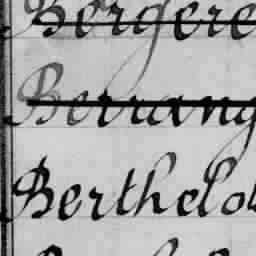 Bergere
Berrang
Berthelo